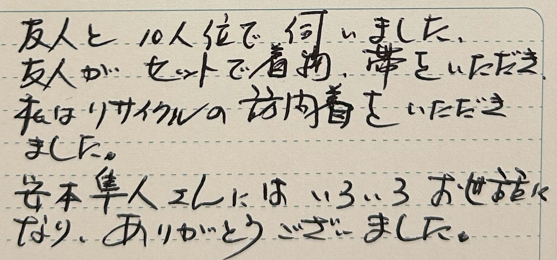 友人と10人位で伺いました。
友人がセットで着物、帯をいただき、
私はリサイクルの訪問着をいただき
ました。
安本隼人さんにはいろいろお世話に
なり、ありがとうございました。